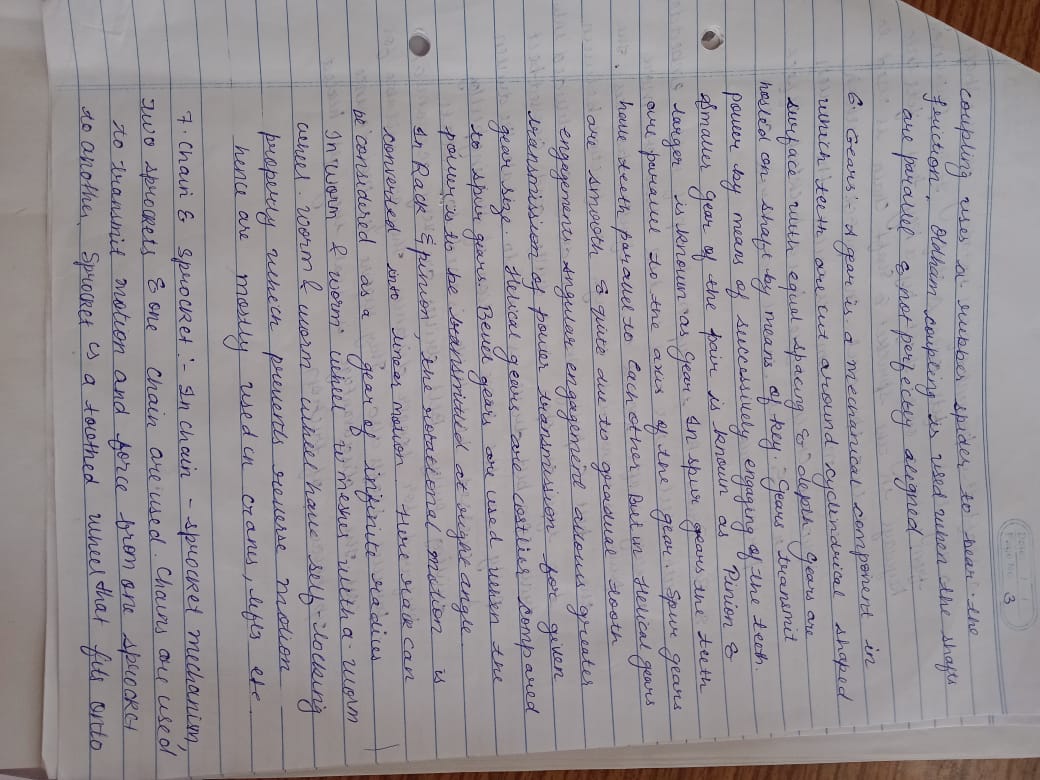 3
coupling uses a rubber spider to bear the
friction. Oldham coupling is used when the shafts
are parallel & not perfectly aligned.
6. Gears :- A gear is a mechanical component in
which teeth are cut around cylindrical shaped
surface with equal spacing & depth. Gears are
hosted on shaft by means of key. Gears transmit
power by mean of successively engaging of the teeth.
Smaller gear of the pair is known as Pinion &
larger is known as gear. In spur gears the teeth
are parallel to the axis of the gear. Spur gears
have teeth parallel to each other but in Helical gears
are smooth & quite due to gradual tooth
engagements. Angular engagement allows greater
transmission of power transmission for given
gear size. Helical gears are costlier compared
to spur gears. Bevel gears are used when the
power is to be transmitted at right angle.
In Rack & pinion, the rotational motion is
converted into linear motion. Here rack can
be considered as a gear of infinite radies
In worm & worm wheel it meshes with a worm
wheel. worm & worm wheel have self-locking
property which prevents reverse motion
hence are mostly used in crans, lifts etc.
7. Chain & Sprocket :- In chain - sprocket mechanism,
two sprockets & one chain are used. Chains are used
to transmit motion and force from one sprocket
to another. Sprocket is a toothed wheel that fits onto